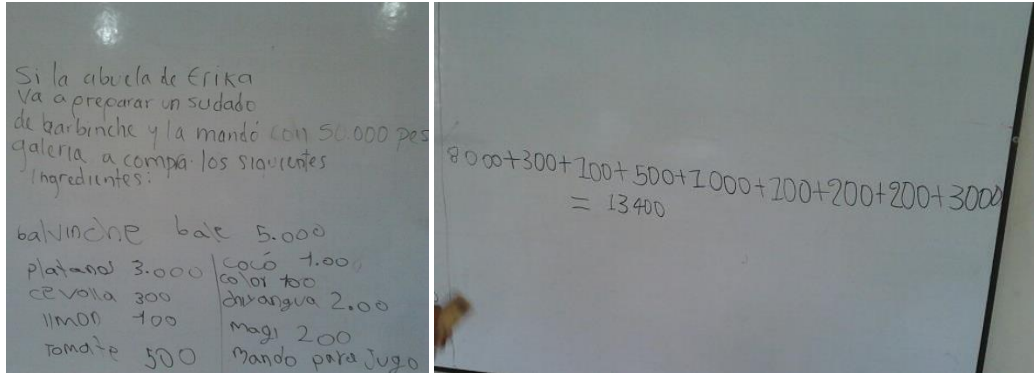 Si la abuela de Erika
va a preparar un sudado
de barbinche y la mandó con 50.000 pes
galería a compra los siguientes
ingredientes:
balvinche bale 5.000
platanos 3.000
cevolla 300
limon 100
Tomate 500
cocó 1.000
color 100
chirangua 2.00
magi 200
mando para jugo
8000+300+100+500+1000+100+200+200+3000
= 13400